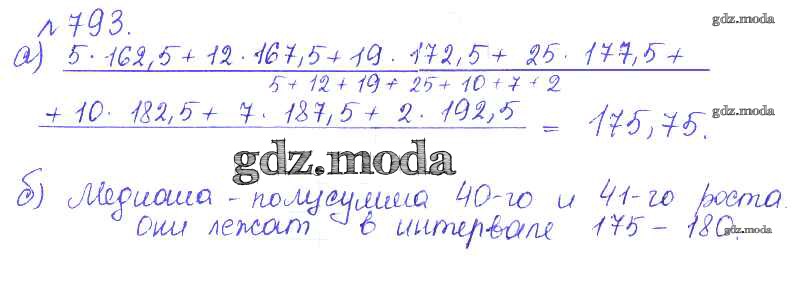 №793.
gdz.moda
а) 5·162,5+12·167,5+19·172,5+25·177,5+
5+12+19+25+10+7+2
+10·182,5+7·187,5+2·192,5 = 175,75.
gdz.moda
gdz.moda
б) Медиана - полусумма 40-го и 41-го роста.
Они лежат в интервале 175-180.
gdz.moda